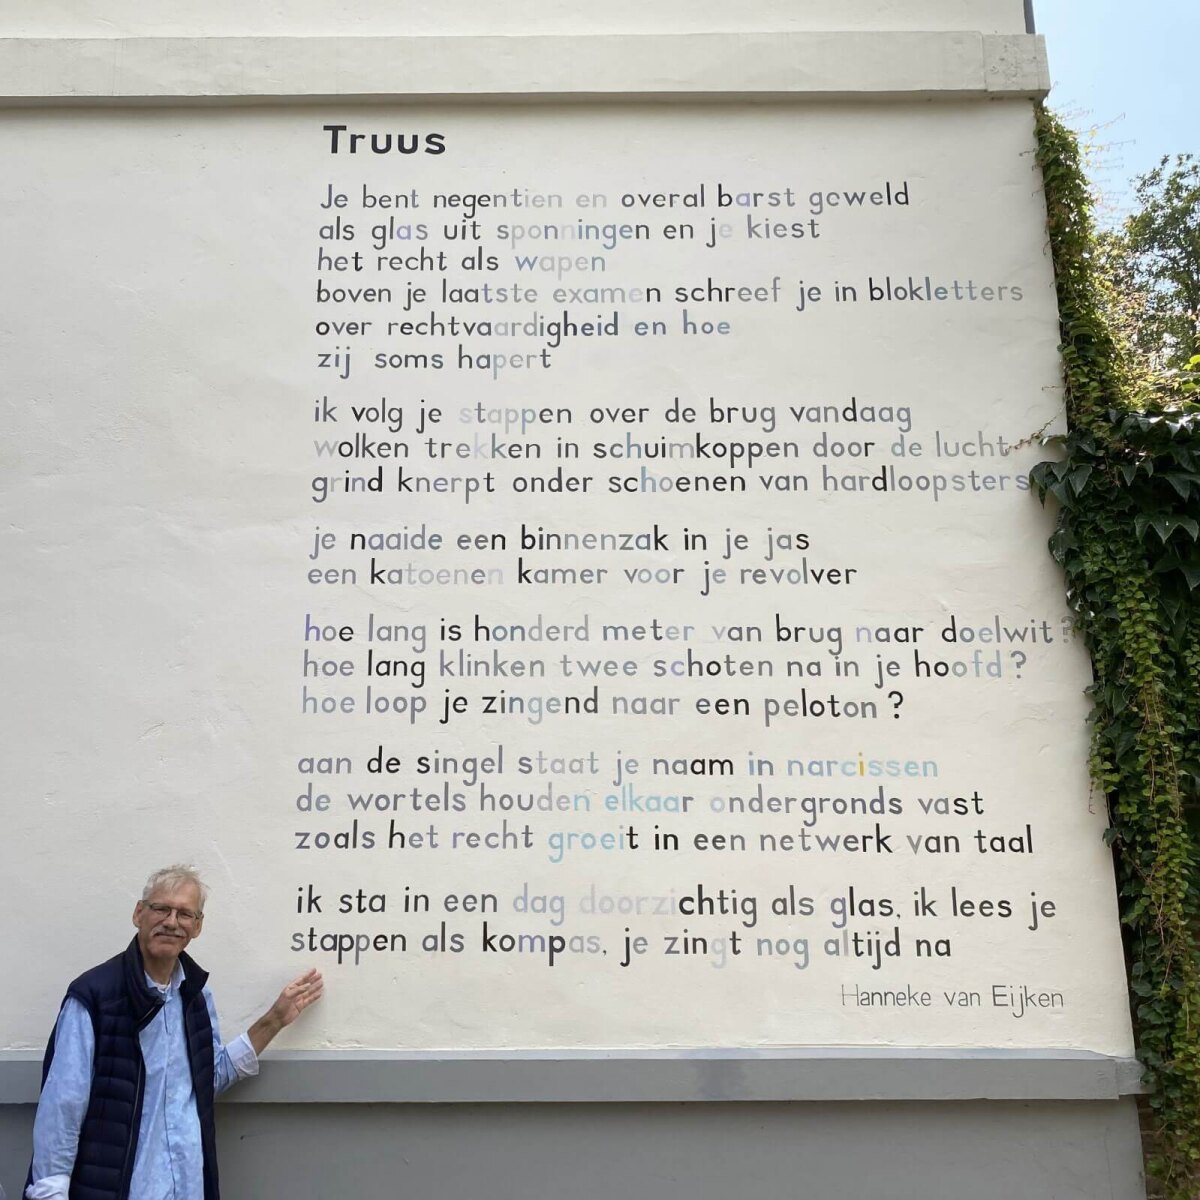 Truus
Je bent negentien en overal barst geweld
als glas uit sponningen en je kiest
het recht als wapen
boven je laatste examen schreef je in blokletters
over rechtvaardigheid en hoe
zij soms hapert
ik volg je stappen over de brug vandaag
wolken trekken in schuimkoppen door de lucht
grind knerpt onder schoenen van hardloopsters
je naaide een binnenzak in je jas
een katoenen kamer voor je revolver
hoe lang is honderd meter van brug naar doelwit?
hoe lang klinken twee schoten na in je hoofd?
hoe loop je zingend naar een peloton?
aan de singel staat je naam in narcissen
de wortels houden elkaar ondergronds vast
zoals het recht groeit in een netwerk van taal
ik sta in een dag doorzichtig als glas, ik lees je
stappen als kompas, je zingt nog altijd na
Hanneke van Eijken